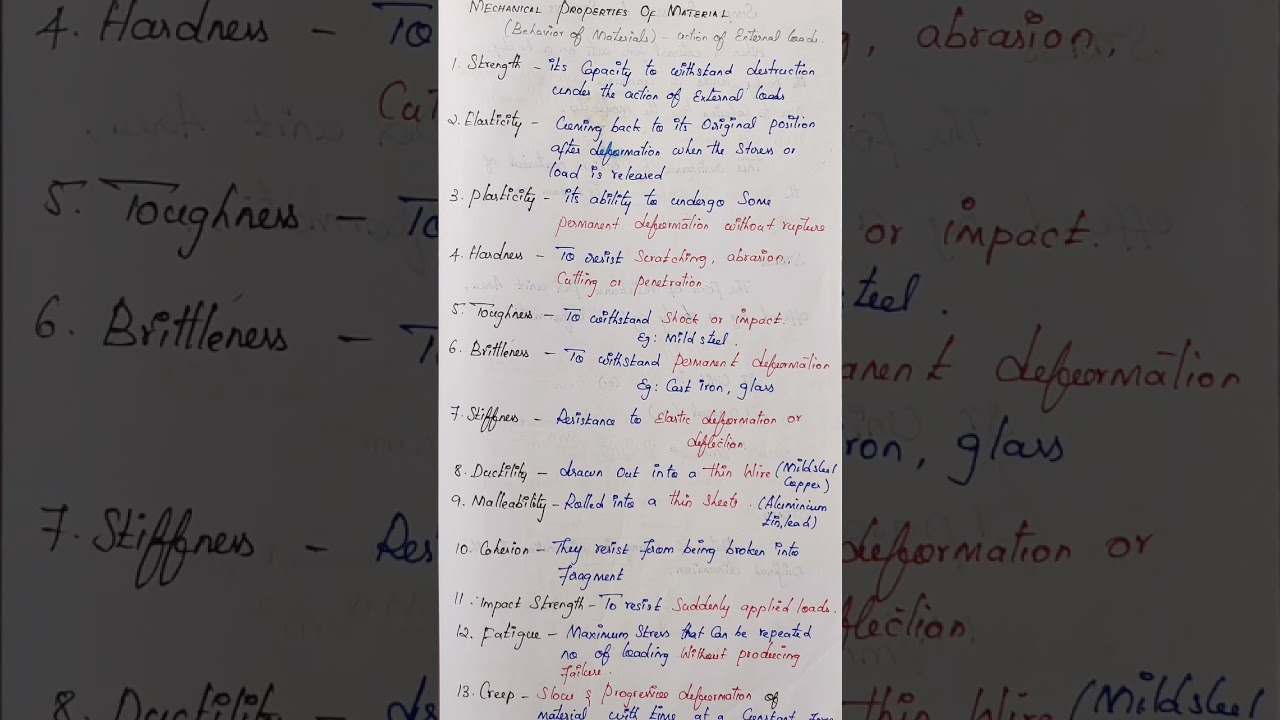 MECHANICAL PROPERTIES OF MATERIAL.
(Behavior of Materials) - action of External loads.
1. Strength - its Capacity to withstand destruction
under the action of External loads
2. Elasticity - Coming back to its Original position
after deformation when the Stress or
load is released
3. Plasticity - its ability to undergo Some
permanent deformation without rupture
4. Hardness - To resist Scratching, abrasion,
Cutting or penetration
5. Toughness - To withstand Shock or impact.
Eg: Mild steel.
6. Brittleness - To withstand permanent deformation
Eg: Cast iron, glass
7. Stiffness - Resistance to Elastic deformation or
deflection
8. Ductility - drawn Out into a thin Wire (Mild steel
Copper)
9. Malleability - Rolled into a thin Sheets. (Aluminium
tin, lead)
10. Cohesion - They resist from being broken into
Fragment
11. Impact Strength - To resist Suddenly applied loads.
12. Fatigue - Maximum Stress that Can be repeated
no of loading Without producing
Failure.
13. Creep - Slow & Progressive deformation of
material with time at a Constant Force